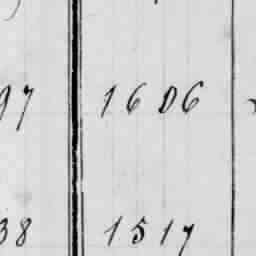 97 1606
38 1517